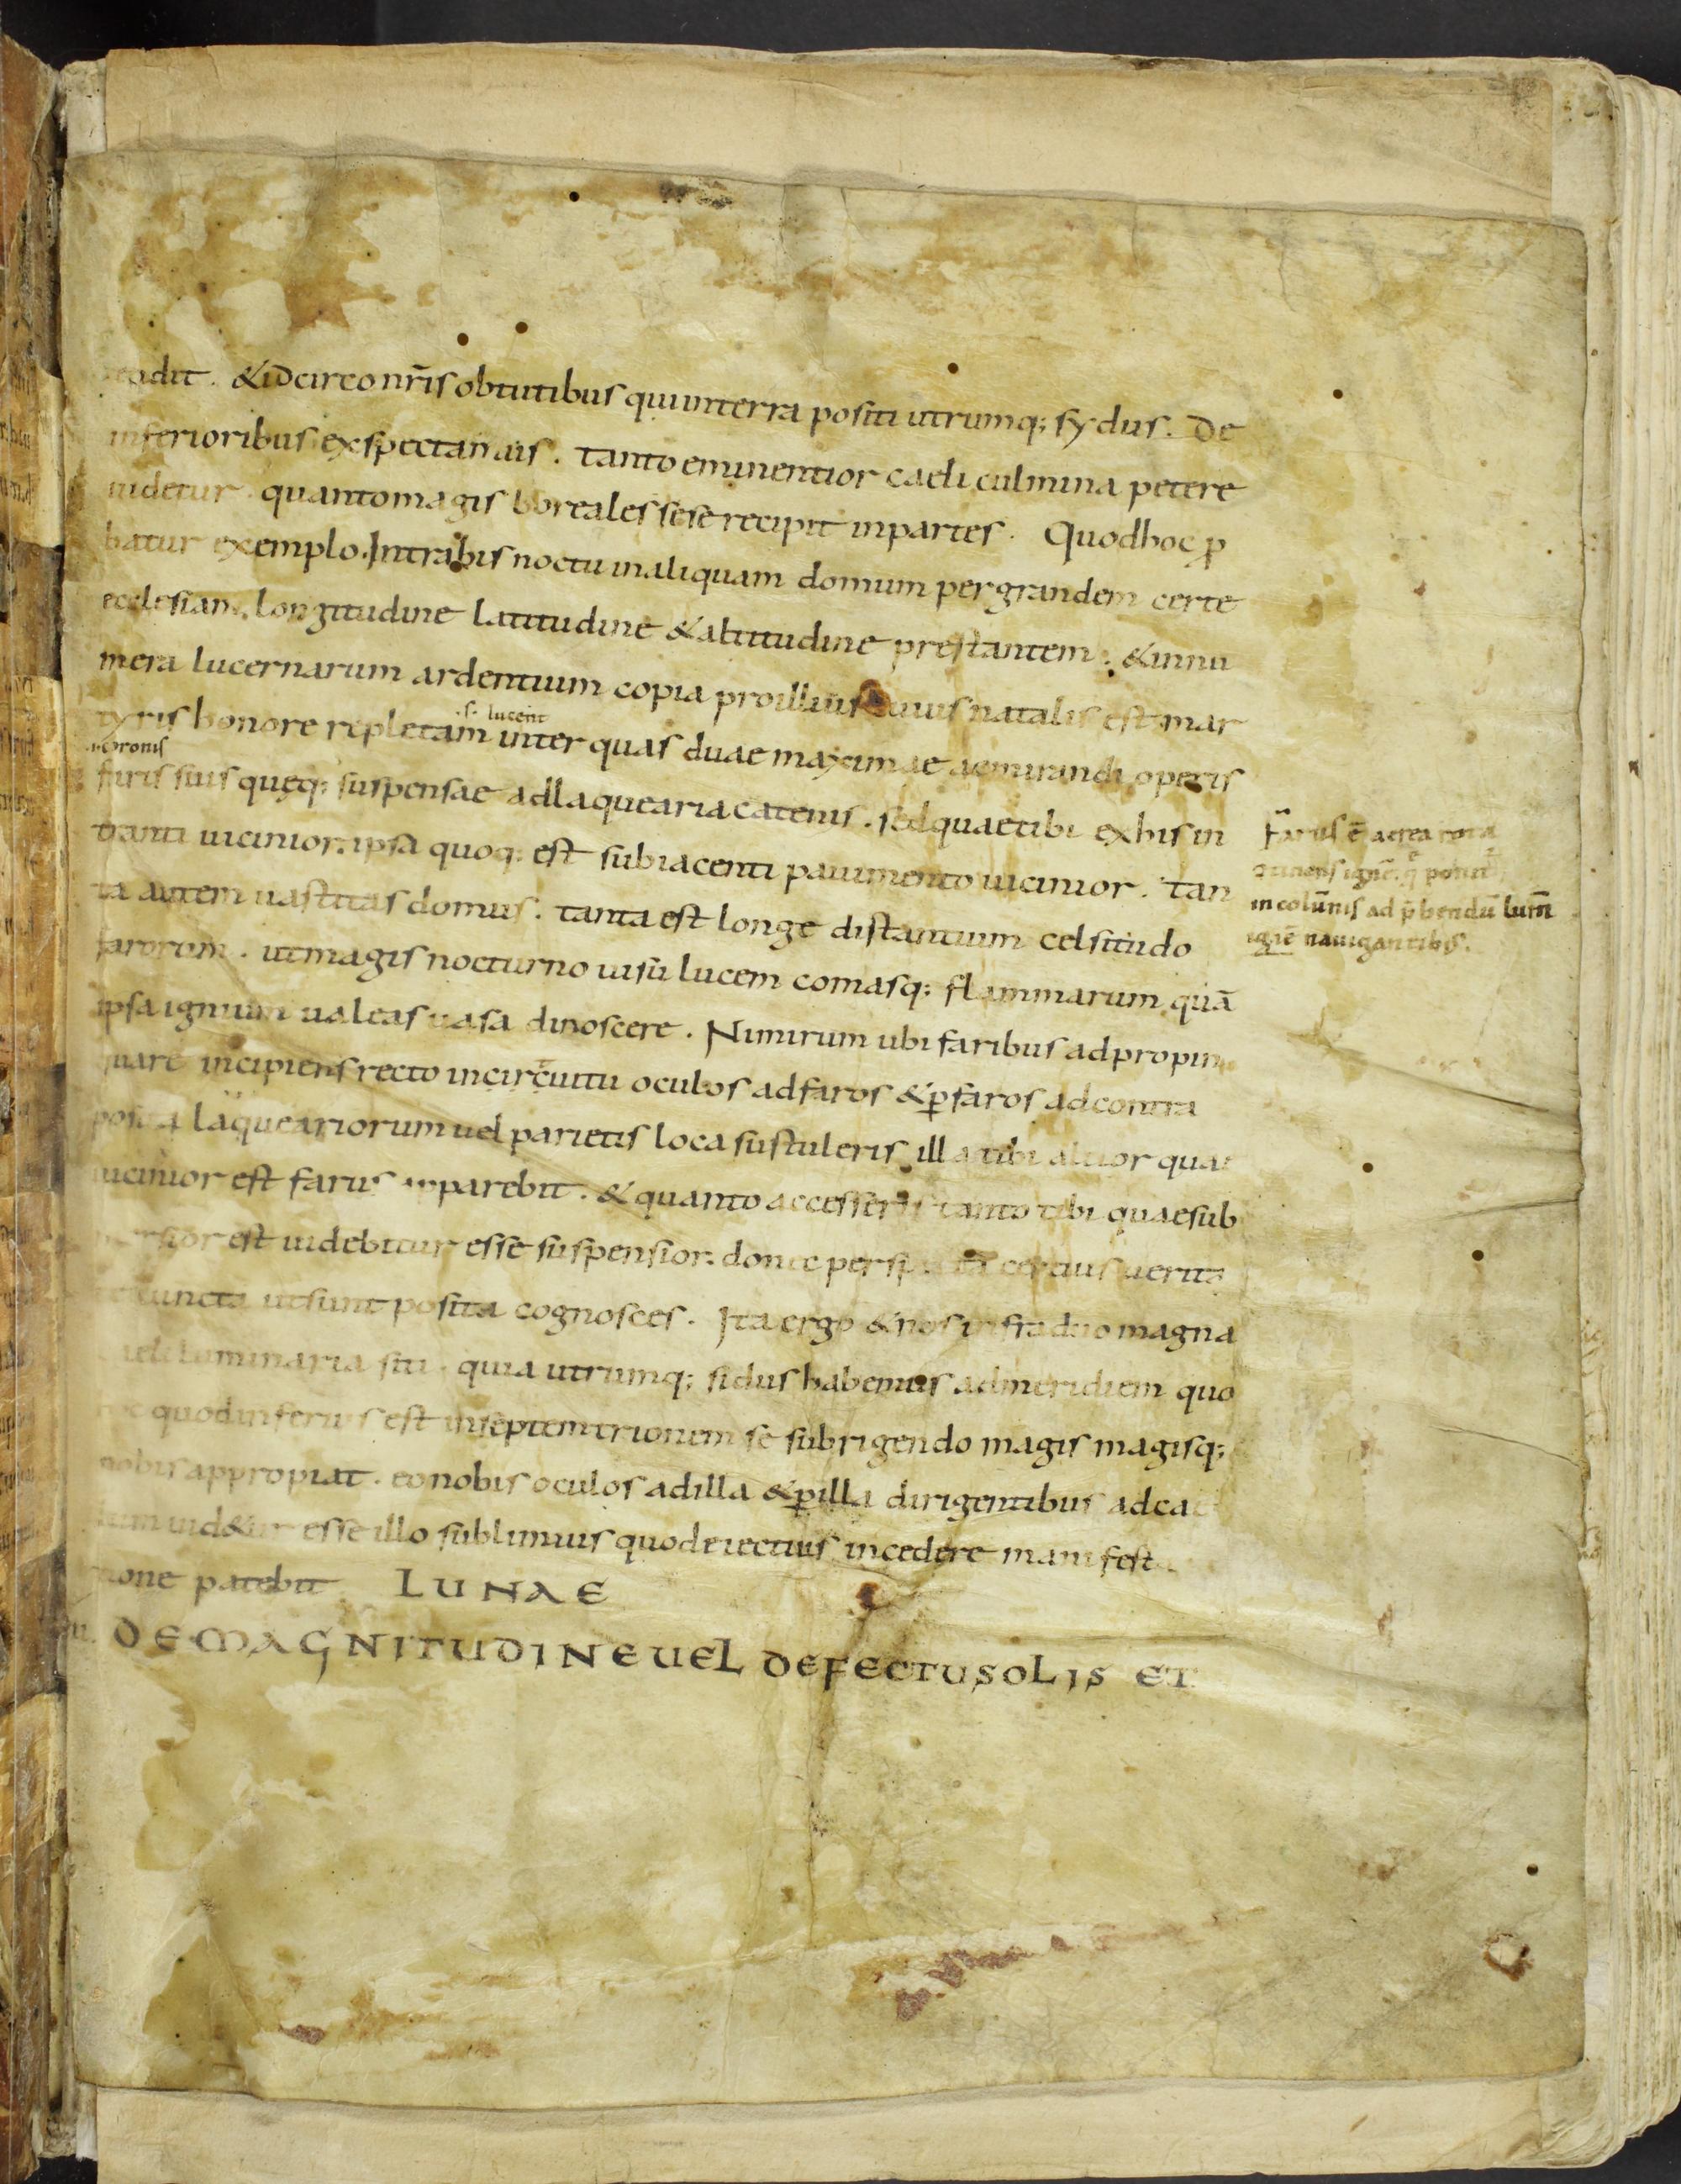 &idcirco nr̄is obtutibus qui in terra positi utrumq; sydus. De
inferioribus exspectamus. tanto eminentior caeli culmina petere
uidetur. quanto magis boreales sese recipit in partes. Quod hoc ꝓ
batur exemplo. Intrabis noctu in aliquam domum pergrandem certe
ecclesiam. longitudine latitudine & altitudine prestantem. & innu
mera lucernarum ardentium copia pro illius cuius natalis est mar
.s. lucent
tyris honore repletam inter quas duae maximae ac mirandi operis
fari suis queq; suspensae ad laquearia catenis. sed quae tibi ex his in
tranti uicinior. ipsa quoq; est subiacenti pauimento uicinior. tan
ta autem uastitas domus. tanta est longe distantium celsitudo
farorum. ut magis nocturno uisu lucem comasq; flammarum quā
ipsa ignium ualeas uasa dinoscere. Nimirum ubi faribus adpropin
quare incipiens recto incircuitu oculos ad faros & ꝑ faros ad contra
posita laqueariorum uel parietis loca sustuleris. illa tibi altior quae
uicinior est farus apparebit. & quanto accesseris tanto tibi quae sub
est uidebitur esse suspensior. donec certius uerita
cuncta ut sunt posita cognosces. Ita ergo & nos infra duo magna
luminaria siti. quia utrumq; sidus habemus ad meridiem quo
quod inferius est in septemtrionem se subrigendo magis magisq;
nobis appropiat. eo nobis oculos ad illa & ꝑ illa dirigentibus ad cae
uid&ur esse illo sublimius quod euectius incedere manifesta
tione patebit LUNAE
DE MAGNITUDINE UEL DEFECTU SOLIS ET
Farus ē aerea
ignē. q̄ ponit
in colūnis ad p̄bendū lum̄
ignē nauigantibus.